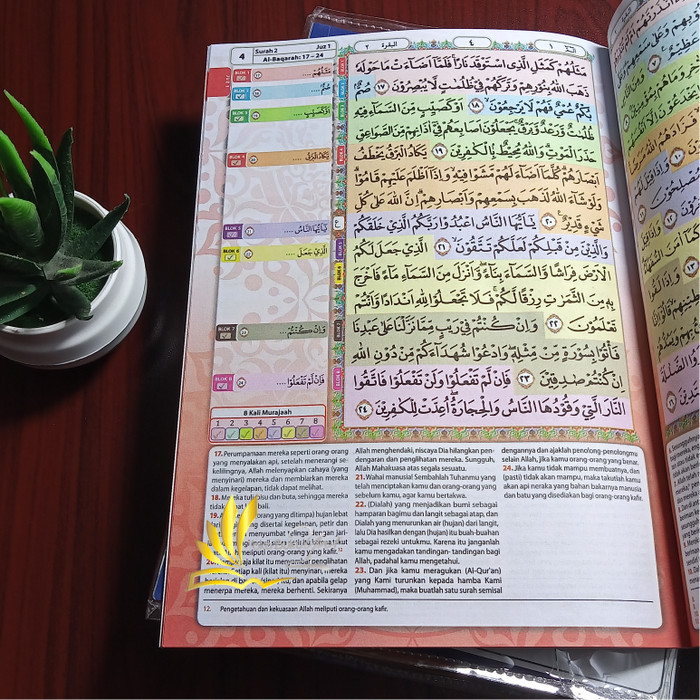 4
Surah 2
Juz 1
Al-Baqarah: 17 – 24
البقرة ٢
٤
١
BLOK 1
مَثَلُهُمْ ....
BLOK 2
صُمٌّ ....
BLOK 3
أَوْ كَصَيِّبٍ ....
BLOK 4
يَكَادُ الْبَرْقُ ....
BLOK 5
يٰٓاَيُّهَا النَّاسُ ....
BLOK 6
الَّذِيْ جَعَلَ ....
BLOK 7
وَاِنْ كُنْتُمْ ....
BLOK 8
فَاِنْ لَّمْ تَفْعَلُوْا ....
8 Kali Murajaah
1 2 3 4 5 6 7 8
مَثَلُهُمْ كَمَثَلِ الَّذِى اسْتَوْقَدَ نَارًاۚ فَلَمَّآ اَضَاۤءَتْ مَا حَوْلَهٗ
ذَهَبَ اللّٰهُ بِنُوْرِهِمْ وَتَرَكَهُمْ فِيْ ظُلُمٰتٍ لَّا يُبْصِرُوْنَ ١٧ صُمٌّۢ
بُكْمٌ عُمْيٌ فَهُمْ لَا يَرْجِعُوْنَۙ ١٨ اَوْ كَصَيِّبٍ مِّنَ السَّمَاۤءِ فِيْهِ
ظُلُمٰتٌ وَّرَعْدٌ وَّبَرْقٌۚ يَجْعَلُوْنَ اَصَابِعَهُمْ فِيْٓ اٰذَانِهِمْ مِّنَ الصَّوَاعِقِ
حَذَرَ الْمَوْتِۗ وَاللّٰهُ مُحِيْطٌۢ بِالْكٰفِرِيْنَ ١٩ يَكَادُ الْبَرْقُ يَخْطَفُ
اَبْصَارَهُمْۗ كُلَّمَآ اَضَاۤءَ لَهُمْ مَّشَوْا فِيْهِۙ وَاِذَآ اَظْلَمَ عَلَيْهِمْ قَامُوْاۗ
وَلَوْ شَاۤءَ اللّٰهُ لَذَهَبَ بِسَمْعِهِمْ وَاَبْصَارِهِمْۗ اِنَّ اللّٰهَ عَلٰى كُلِّ
شَيْءٍ قَدِيْرٌ ٢٠ يٰٓاَيُّهَا النَّاسُ اعْبُدُوْا رَبَّكُمُ الَّذِيْ خَلَقَكُمْ
وَالَّذِيْنَ مِنْ قَبْلِكُمْ لَعَلَّكُمْ تَتَّقُوْنَۙ ٢١ الَّذِيْ جَعَلَ لَكُمُ
الْاَرْضَ فِرَاشًا وَّالسَّمَاۤءَ بِنَاۤءًۖ وَّاَنْزَلَ مِنَ السَّمَاۤءِ مَاۤءً فَاَخْرَجَ
بِهٖ مِنَ الثَّمَرٰتِ رِزْقًا لَّكُمْۚ فَلَا تَجْعَلُوْا لِلّٰهِ اَنْدَادًا وَّاَنْتُمْ
تَعْلَمُوْنَ ٢٢ وَاِنْ كُنْتُمْ فِيْ رَيْبٍ مِّمَّا نَزَّلْنَا عَلٰى عَبْدِنَا
فَأْتُوْا بِسُوْرَةٍ مِّنْ مِّثْلِهٖۖ وَادْعُوْا شُهَدَاۤءَكُمْ مِّنْ دُوْنِ اللّٰهِ
اِنْ كُنْتُمْ صٰدِقِيْنَ ٢٣ فَاِنْ لَّمْ تَفْعَلُوْا وَلَنْ تَفْعَلُوْا فَاتَّقُوا
النَّارَ الَّتِيْ وَقُوْدُهَا النَّاسُ وَالْحِجَارَةُۖ اُعِدَّتْ لِلْكٰفِرِيْنَ ٢٤
17. Perumpamaan mereka seperti orang-orang
yang menyalakan api, setelah menerangi se-
kelilingnya, Allah melenyapkan cahaya (yang
menyinari) mereka dan membiarkan mereka
dalam kegelapan, tidak dapat melihat.
18. tuli, bisu dan buta, sehingga mereka
tidak
19. orang yang ditimpa) hujan lebat
yang disertai kegelapan, petir dan
menyumbat telinga dengan jari-
meliputi orang-orang yang kafir.12
20. kilat itu menyambar penglihatan
tiap kali (kilat itu) menyinari, mereka
berjalan di dan apabila gelap
menerpa mereka, mereka berhenti. Sekiranya
Allah menghendaki, niscaya Dia hilangkan pen-
dengaran dan penglihatan mereka. Sungguh,
Allah Mahakuasa atas segala sesuatu.
21. Wahai manusia! Sembahlah Tuhanmu yang
telah menciptakan kamu dan orang-orang yang
sebelum kamu, agar kamu bertakwa.
22. (Dialah) yang menjadikan bumi sebagai
hamparan bagimu dan langit sebagai atap, dan
Dialah yang menurunkan air (hujan) dari langit,
lalu Dia hasilkan dengan (hujan) itu buah-buahan
sebagai rezeki untukmu. Karena itu janganlah
kamu mengadakan tandingan- tandingan bagi
Allah, padahal kamu mengetahui.
23. Dan jika kamu meragukan (Al-Qur'an)
yang Kami turunkan kepada hamba Kami
(Muhammad), maka buatlah satu surah semisal
dengannya dan ajaklah penolong-penolongmu
selain Allah, jika kamu orang-orang yang benar.
24. Jika kamu tidak mampu membuatnya, dan
(pasti) tidak akan mampu, maka takutlah kamu
akan api neraka yang bahan bakarnya manusia
dan batu yang disediakan bagi orang-orang kafir.
12. Pengetahuan dan kekuasaan Allah meliputi orang-orang kafir.